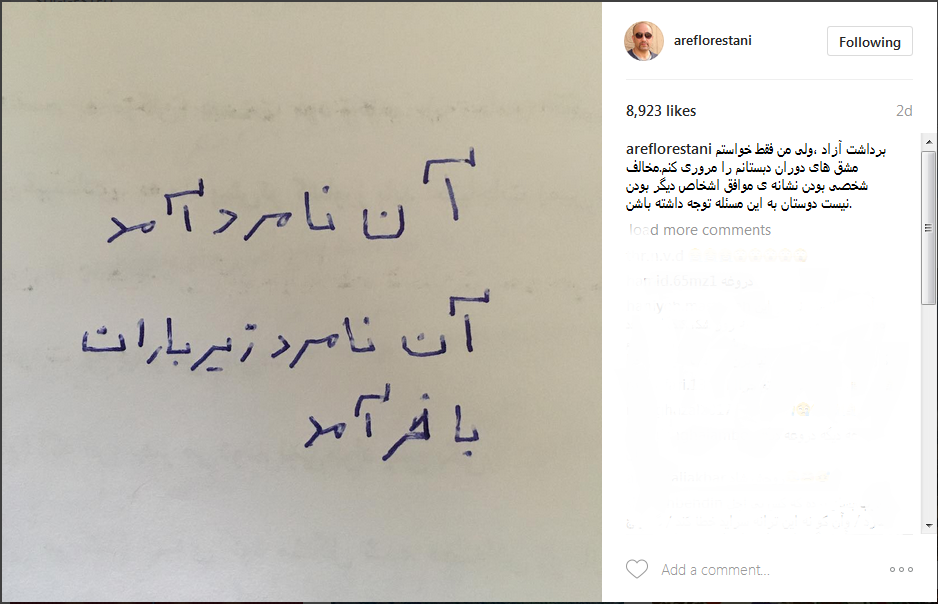 آن نامرد آمد
آن نامرد زیر باران
با خر آمد
areflorestani
Following
8,923 likes
2d
areflorestani برداشت آزاد ،ولی من فقط خواستم
مشق های دوران دبستانم را مروری کنم.مخالف
شخصی بودن نشانه ی موافق اشخاص دیگر بودن
نیست دوستان به این مسئله توجه داشته باشن.
load more comments
Add a comment...